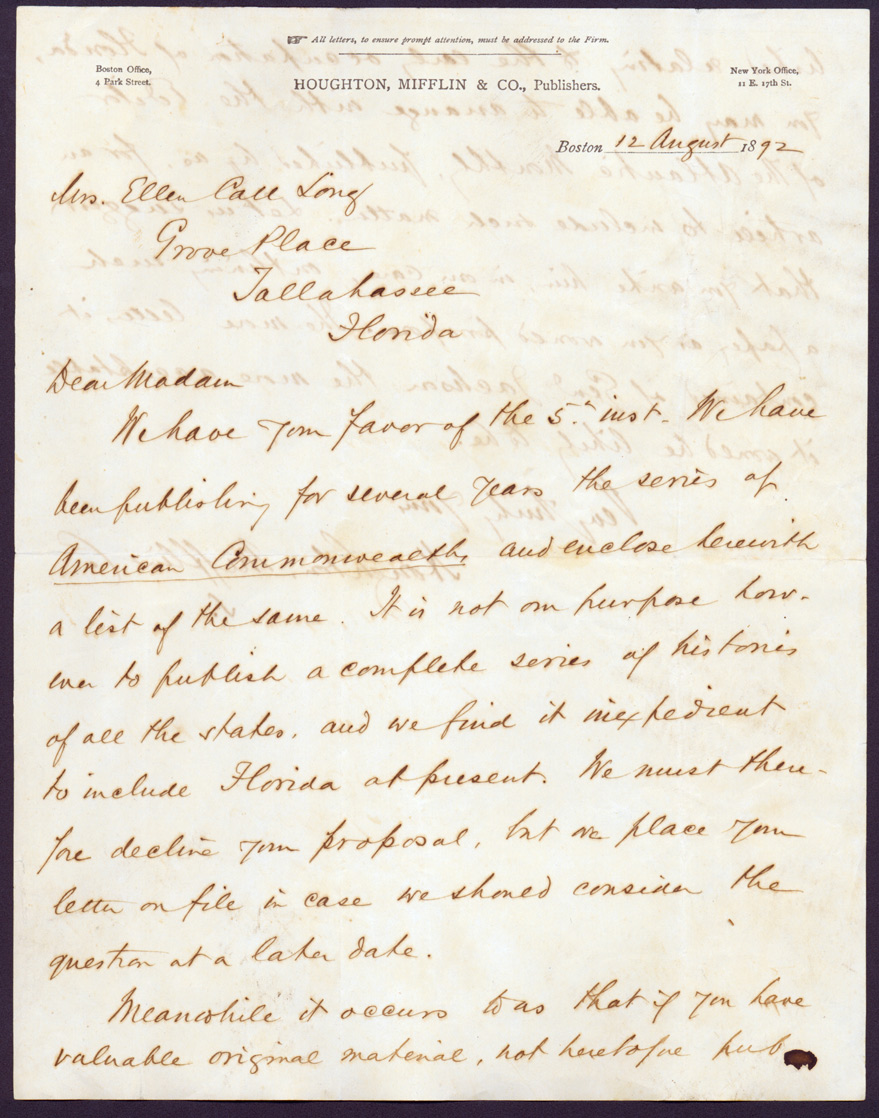 ☞ All letters, to ensure prompt attention, must be addressed to the Firm.
Boston Office,
4 Park Street.
HOUGHTON, MIFFLIN & CO., Publishers.
New York Office,
11 E. 17th St.
Boston 12 August 1892
Mrs. Ellen Call Long
Grove Place
Tallahassee
Florida
Dear Madam
We have your favor of the 5th inst. We have
been publishing for several years the series of
American Commonwealths, and enclose herewith
a list of the same. It is not our purpose how-
ever to publish a complete series of histories
of all the states, and we find it inexpedient
to include Florida at present. We must there-
fore decline your proposal, but we place your
letter on file in case we should consider the
question at a later date.
Meanwhile it occurs to us that if you have
valuable original material, not heretofore pub